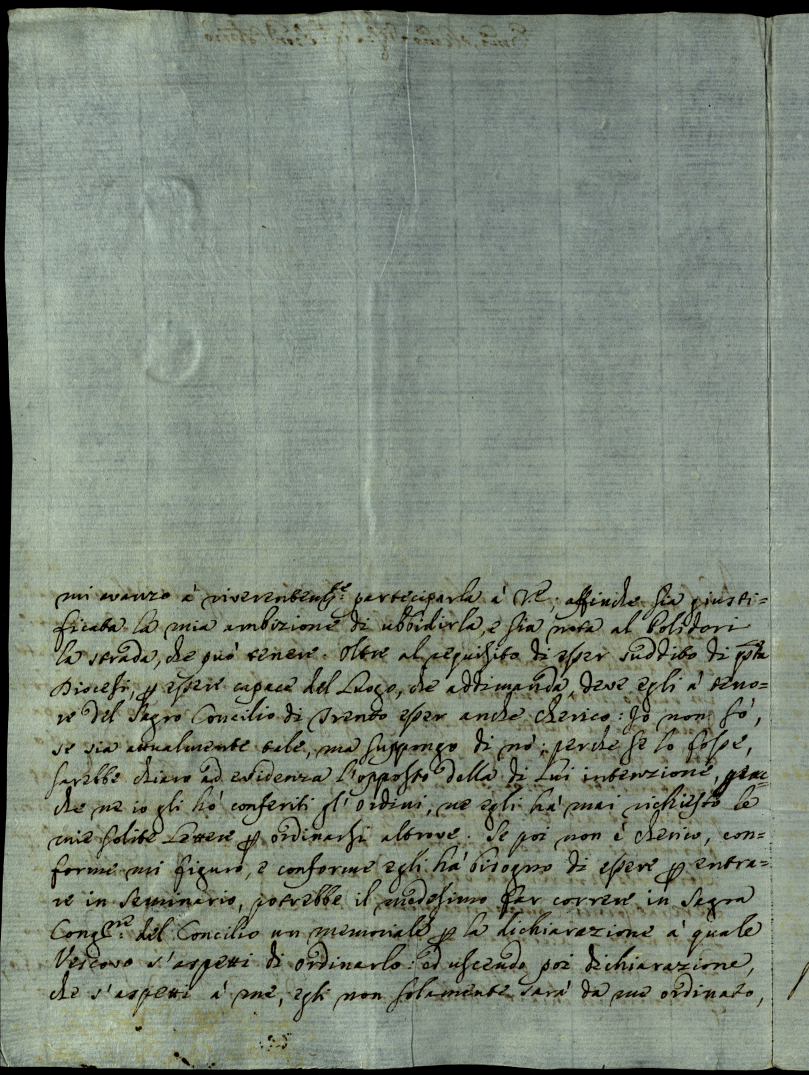 mi avanzo à riverentem.te parteciparla à V.E.; affinche sia giusti=
ficata la mia ambizione di ubbidirla, e sia nota al Polidori
la strada, che può tenere. Oltre al requisito di esser suddito di q̃sta
Diocesi, ꝑ essere capace del Luogo, che addimanda, deve egli à teno=
re del Sagro Concilio di Trento esser anche cherico: Io non sò,
se sia attualmente tale, ma suppongo di nò; perche se lo fosse,
sarebbe chiaro ad evidenza l'opposto della di Lui intenzione, giac=
che ne io gli hò conferiti gl'ordini, ne egli hà mai richiesto le
mie solite Lettere ꝑ ordinarsi altrove. Se poi non è cherico, con=
forme mi figuro, e conforme egli hà bisogno di essere ꝑ entra=
re in Seminario, potrebbe il medesimo far correre in Sagra
Cong.ne del Concilio un memoriale ꝑ la dichiarazione à quale
Vescovo s'aspetti di ordinarlo: ed uscendo poi dichiarazione,
che s'aspetti à me, egli non solamente sarà da me ordinato,